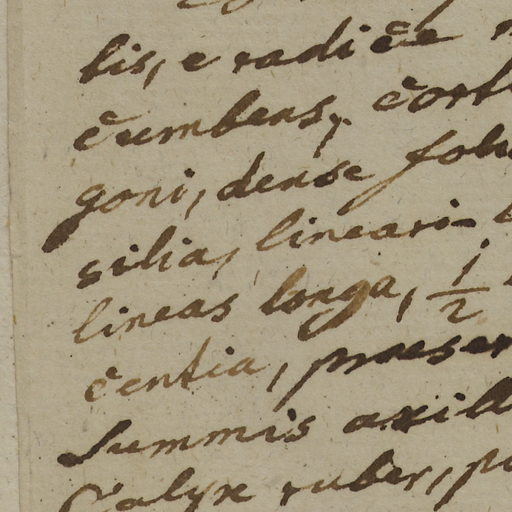 bis, e radice
cumbens,
goni, dense
silia, lineari-
lineas longa, 1/2
centia,
summis
Calyx ruber,